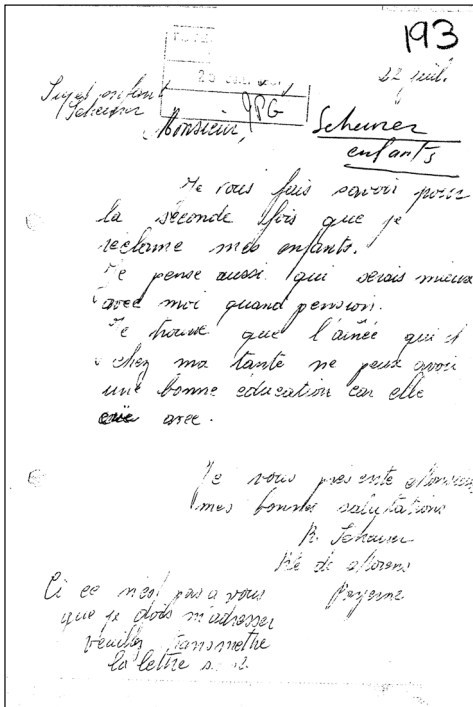 193
22 juil.
Sujet enfant
Scheuner
JPG
Monsieur,
Scheuner
enfants
Je vous fais savoir pour
la séconde fois que je
réclame mes enfants.
Je pense aussi qui serais mieux
avec moi quand pension.
Je trouve que l'ainée qui et
chez ma tante ne peux avoir
une bonne éducation car elle
avec.
Je vous présente Monsieur
mes bonnes salutations
R. Scheuner
Payerne
Ci ce n'est pas a vous
que je dois m'adresser
veuillez transmethre
la lettre